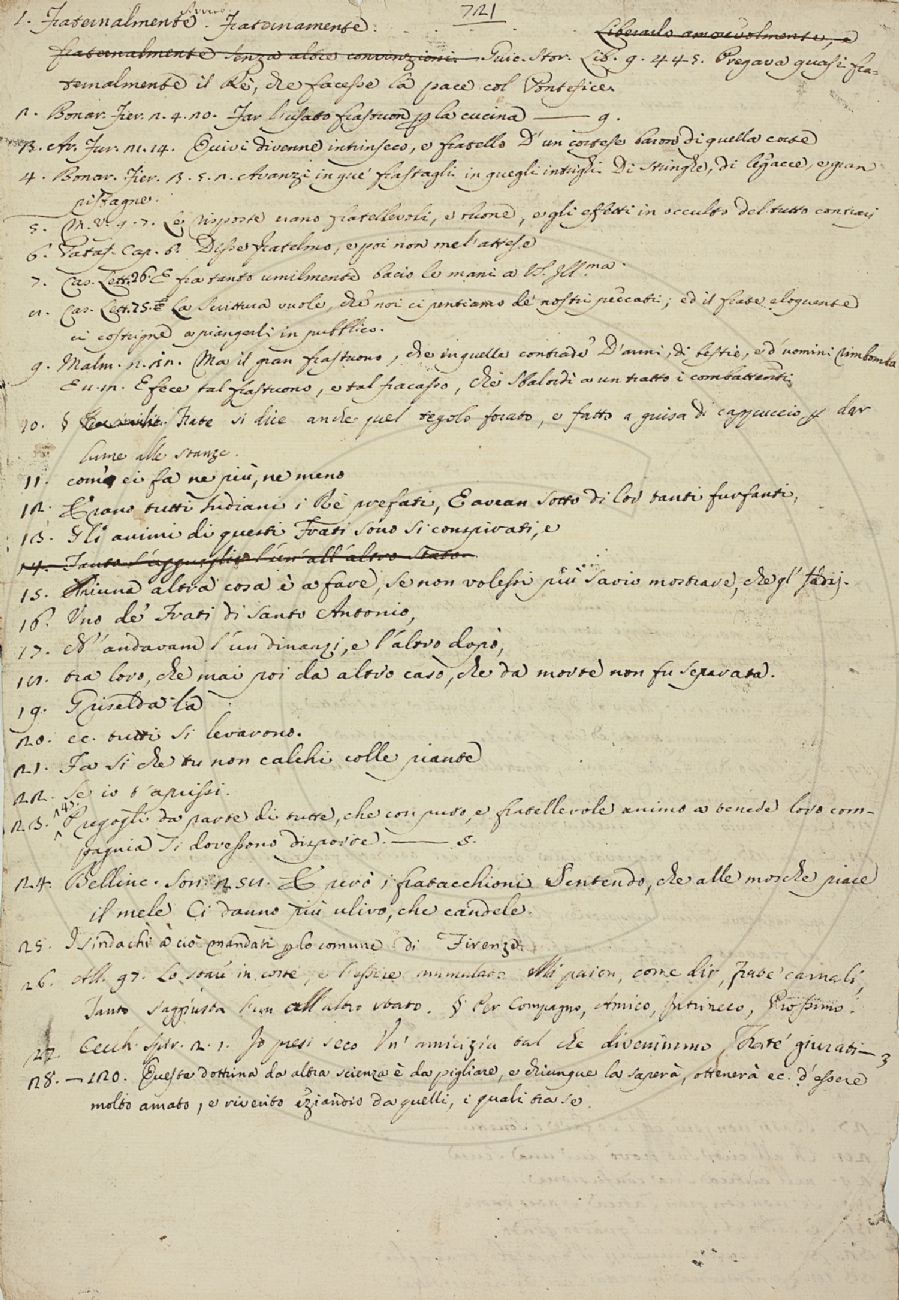 721
1. Fraternalmente. Fraternamente: Liberarlo amorevolmente, e
fraternalmente senza altre convenzioni. Guic. Stor. Lib. 9. 445. Pregava quasi fra-
ternalmente il Rè, che facesse la pace col Pontefice.
2. Bonar. Fier. 2. 4. 20. Far l'usato frastuon p la cucina —— 9.
3. Ar. Fur. 21. 14. Quivi divenne intrinseco, e fratello D'un cortese baron di quella corte
4. Bonar. Fier. 3. 5. 2. Avanzi in que' frastagli in quegli intrighi Di stringhe, di legacce, e gran
pistagne.
5. M. V. 9. 7. Le risposte erano fratellevoli, e buone, e gli effetti in occulto del tutto contrarj
6. Pataf. Cap. 6. Disse fratelmo, e poi non me l'attese
7. Car. Lett. 26. E fra tanto umilmente bacio le mani a VS. Illma.
8. Car. Lett. 75. La Scrittura vuole, che noi ci pentiamo de' nostri peccati; ed il frate eloquente
ci costrigne a piangerli in pubblico.
9. Malm. Ma il gran frastuono, che in quella contrade D'armi, di bestie, e d'uomini rimbomba
E Fece tal frastuono, e tal fracasso, che sbalordì a un tratto i combattenti.
10. § Frate si dice anche quel tegolo forato, e fatto a guisa di cappuccio p dar
lume alle stanze.
11. come ci fa ne più, ne meno
12. Erano tutti Indiani i Rè prefati, E avean sotto di lor tanti furfanti,
13. Gli animi di questi Frati sono sì conspirati, e
14. Tanto s'agguaglia l'un' all'altro stato.
15. Niuna altra cosa è a fare, se non volessi più savio mostrare, che gl' Iddij.
16. Uno de' Frati di Santo Antonio,
17. N'andavam l'un dinanzi, e l'altro dopo,
18. tra loro, che mai poi da altro caso, che da morte non fu separata.
19. Griselda la
20. ec. tutti si levarono.
21. Fa sì che tu non calchi colle piante
22. Se io t'aprissi.
23. pregogli da parte di tutte, che con puro, e fratellevole animo a tenere loro com-
pagnia si dovessono disporre. —— 5.
24. Bellinc. Son. 251. E però i fratacchioni Sentendo, che alle mosche piace
il mele Ci danno più ulivo, che candele.
25. I sindachi a ciò mandati p lo comune di Firenze.
26. All. 97. Lo stare in corte, e l'essere ammalato Mi paion, come dir, frate' carnali,
Tanto s'agguaglia l'un all'altro stato. § Per Compagno, Amico, Intrinseco, Prossimo.
27. Cecch. Spir. 2. 1. Io presi seco Un' amicizia tal che divenimmo Frate' giurati —3
28. —120. Questa dottrina da altra scienza è da pigliare, e chiunque la saperà, ottenerà ec. d'essere
molto amato, e riverito eziandio da quelli, i quali tra se.